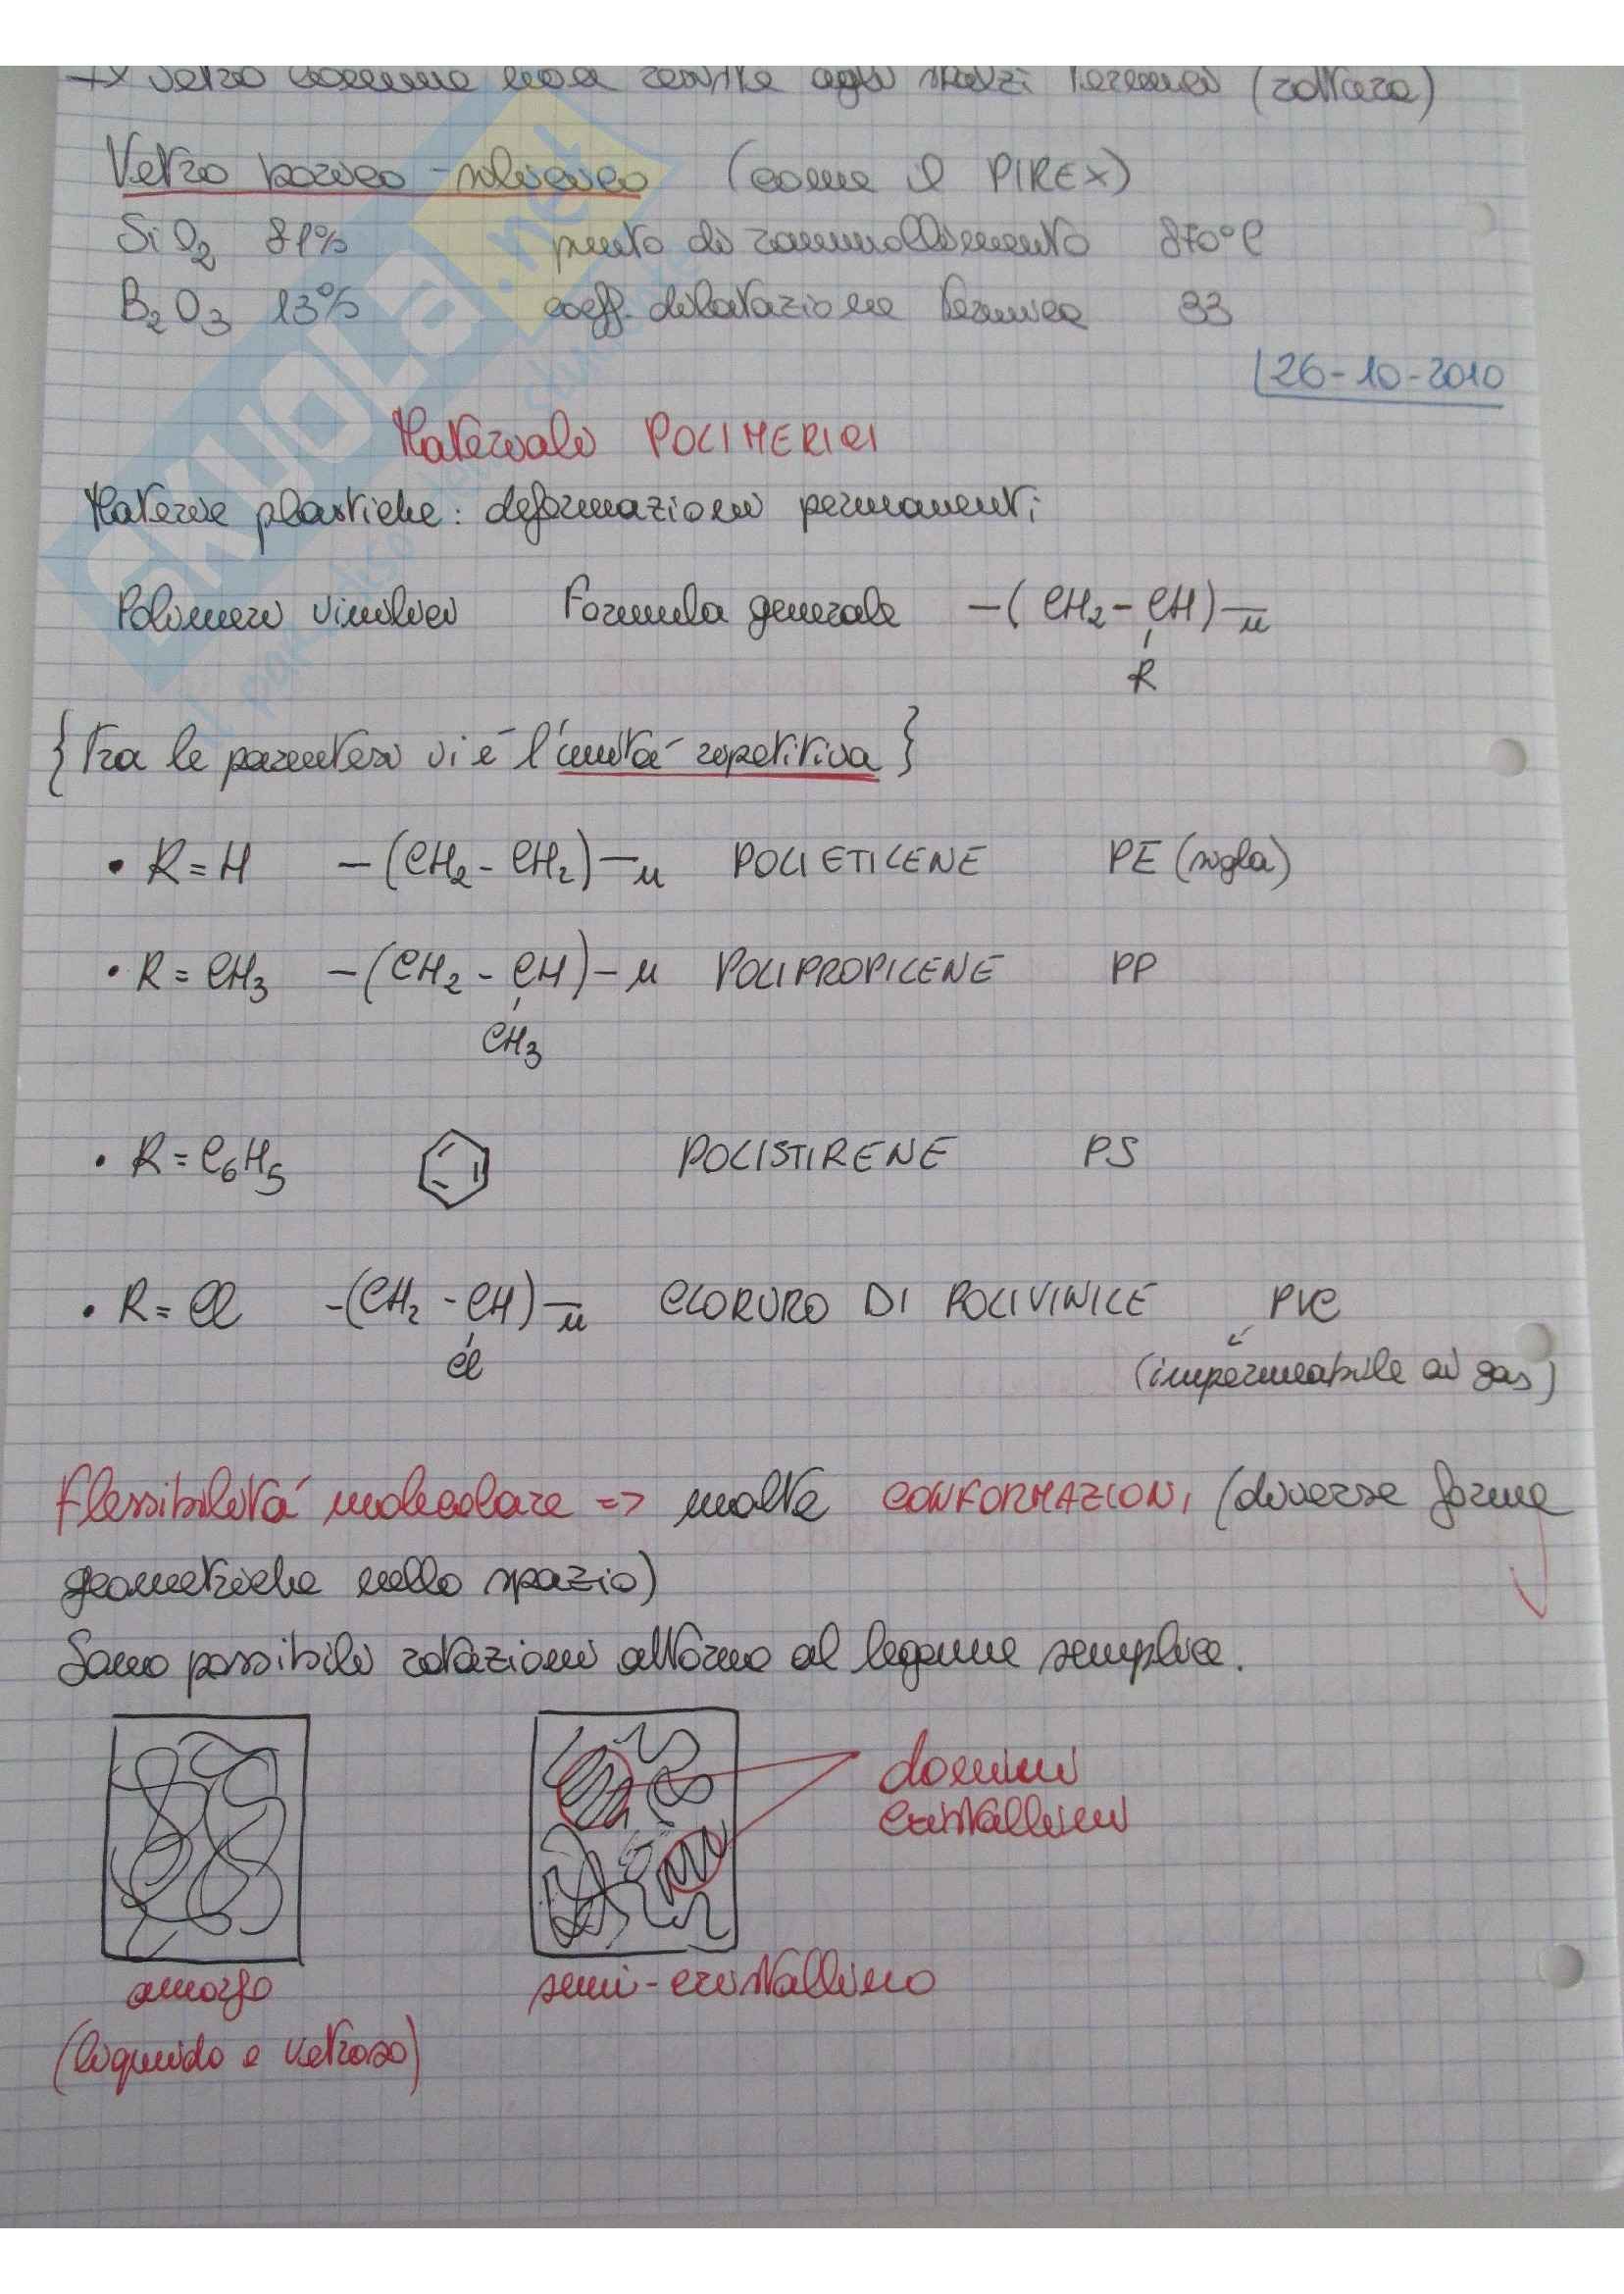 Il vetro comune non resiste agli sbalzi termici (rottura)
Vetro borico-silicico (come il PIREX)
SiO2 81% punto di rammollimento 870°C
B2O3 13% coeff. dilatazione termica 33
26-10-2010
Materiali POLIMERICI
Materie plastiche: deformazioni permanenti
Polimeri vinilici Formula generale -(CH2-CH)-n
R
{Tra le parentesi vi è l'unità repetitiva}
• R=H -(CH2-CH2)-n POLIETILENE PE (sigla)
• R=CH3 -(CH2-CH)-n POLIPROPILENE PP
CH3
• R=C6H5 POLISTIRENE PS
• R=Cl -(CH2-CH)-n CLORURO DI POLIVINILE PVC
Cl (impermeabile ai gas)
Flessibilità molecolare => molte CONFORMAZIONI (diverse forme
geometriche nello spazio)
Sono possibili rotazioni attorno al legame semplice.
domini
cristallini
amorfo semi-cristallino
(liquido e vetroso)
SKUOLA.net